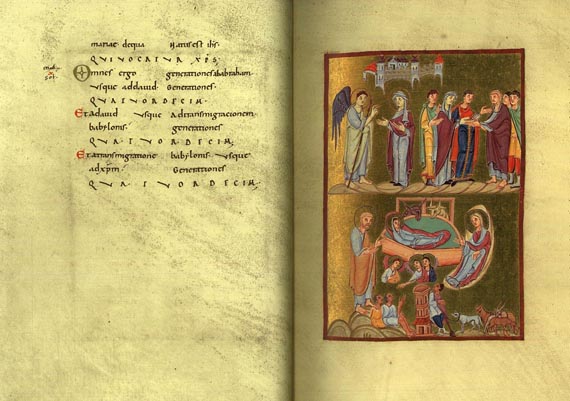 mariae dequa Natus est ihs.
QVIVOCATVR XPS.
Omnes ergo generationes ababraham
usque addauid Generationes
QVATVORDECIM.
Et adauid usque Adtransmigrationem
babylonis. generationes
QVATVORDECIM.
Et atransmigratione babylonis usque
adxpm Generationes
QVATVORDECIM.